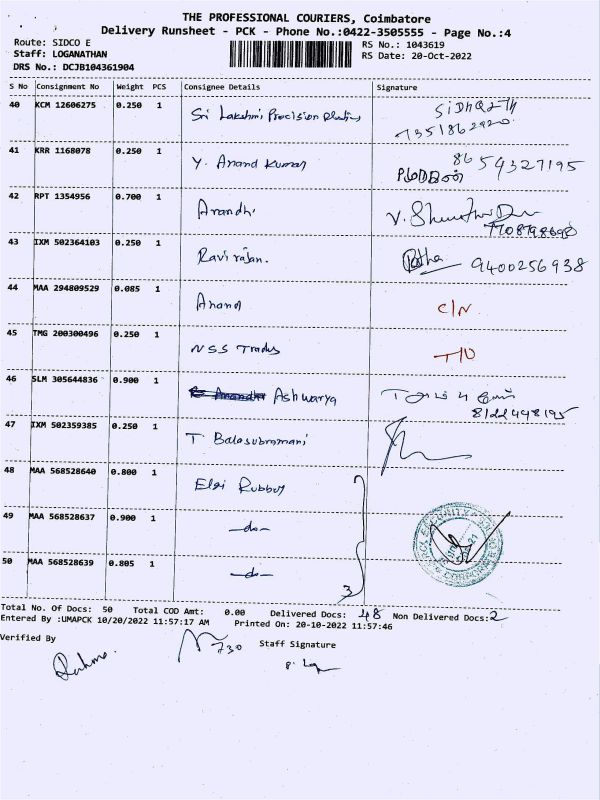 THE PROFESSIONAL COURIERS, Coimbatore
Delivery Runsheet - PCK - Phone No.:0422-3505555 - Page No.:4
Route: SIDCO E
RS No.: 1043619
Staff: LOGANATHAN
RS Date: 20-Oct-2022
DRS No.: DCJB104361904
S No Consignment No Weight PCS Consignee Details Signature
40 KCM 12606275 0.250 1 Sri Lakshmi Precision
7351862920
41 KRR 1168078 0.250 1 Y. Anand Kumar 8654327195
42 RPT 1354956 0.700 1 Anandhi
43 IXM 502364103 0.250 1 Ravi rajan. 9400256938
44 MAA 294809529 0.085 1 Anand C/N.
45 TMG 200300496 0.250 1 NSS Trades
46 SLM 305644836 0.900 1 Ashwarya
47 IXM 502359385 0.250 1 T. Balasubramani
48 MAA 568528640 0.800 1 Elgi Rubber
49 MAA 568528637 0.900 1 -do-
50 MAA 568528639 0.805 1 -do-
3
Total No. Of Docs: 50 Total COD Amt: 0.00 Delivered Docs: 48 Non Delivered Docs:2
Entered By :UMAPCK 10/20/2022 11:57:17 AM Printed On: 20-10-2022 11:57:46
Verified By
730 Staff Signature